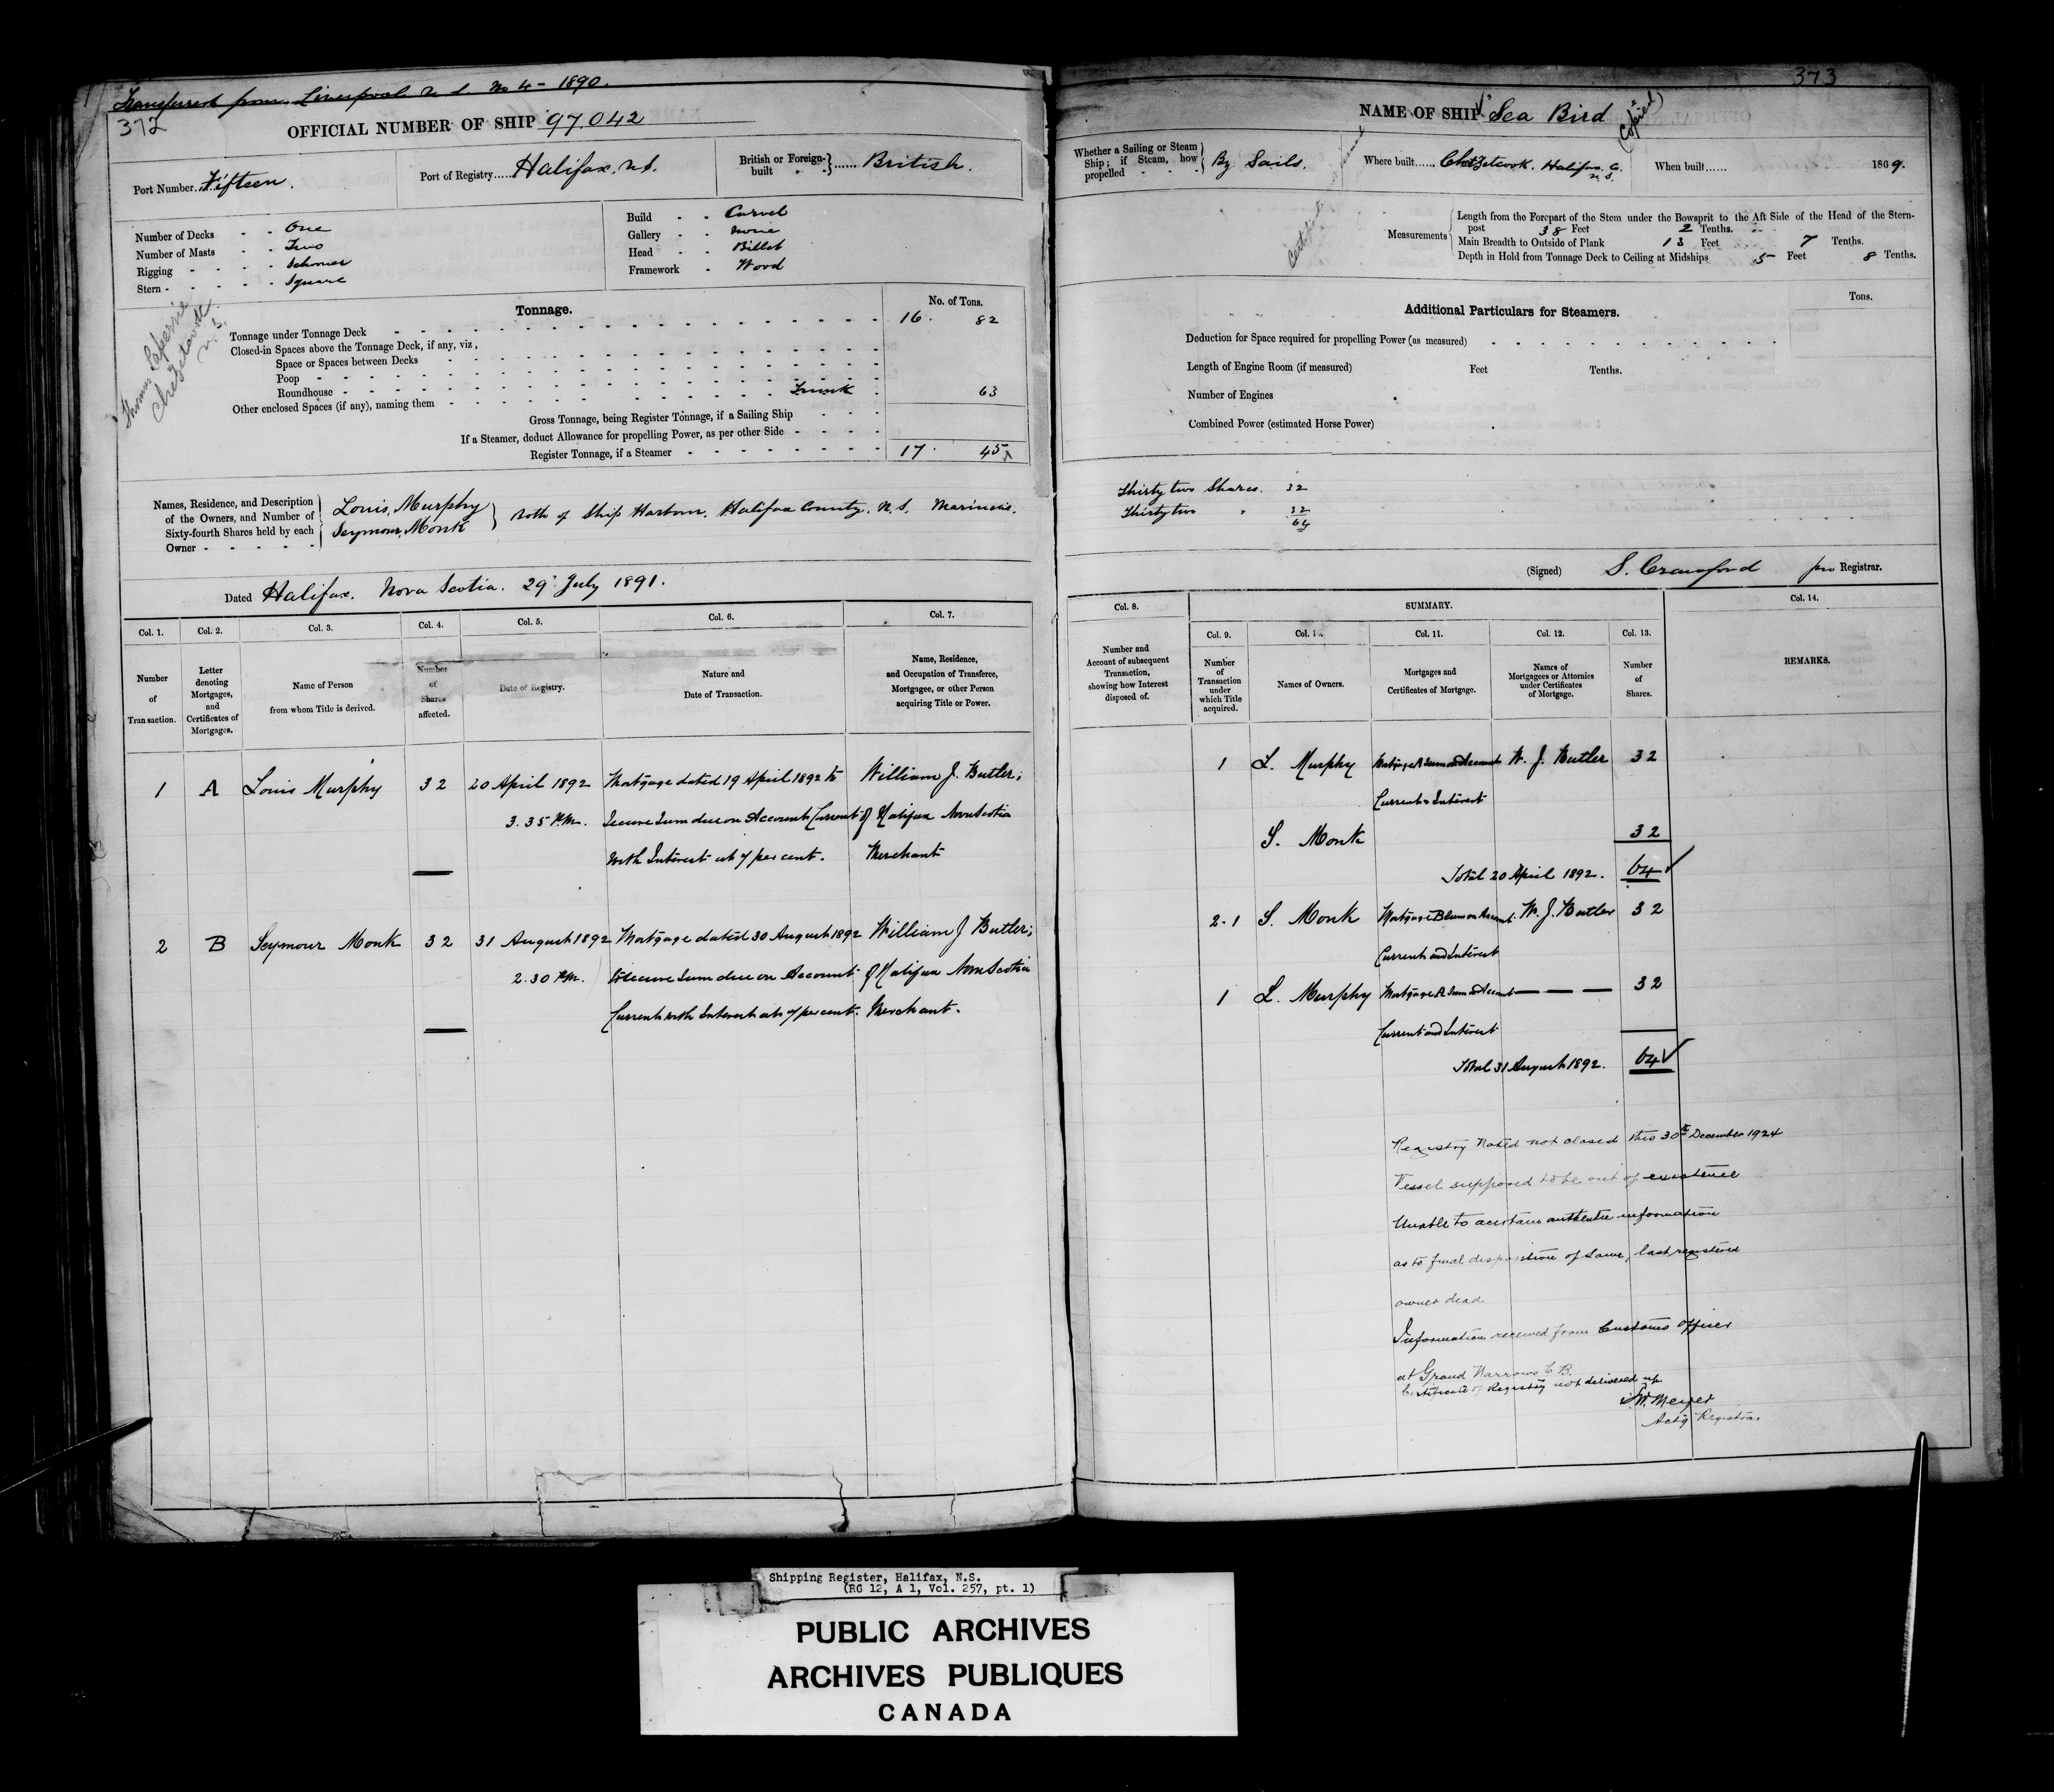 Transferred from Liverpool N.S. No 4 - 1890.
372
OFFICIAL NUMBER OF SHIP 97.042
Port Number Fifteen.
Port of Registry Halifax, N.S.
British or Foreign-built British.
Number of Decks - - One
Number of Masts - - Two
Rigging - - - - Schooner
Stern - - - - - Square
Build - - Carvel
Gallery - - None
Head - - Billet
Framework - Wood
Thomas
Chezetcook
N.S.
Tonnage.
No. of Tons.
Tonnage under Tonnage Deck 16. 82
Closed-in Spaces above the Tonnage Deck, if any, viz,
Space or Spaces between Decks
Poop
Roundhouse Trunk 63
Other enclosed Spaces (if any), naming them
Gross Tonnage, being Register Tonnage, if a Sailing Ship
If a Steamer, deduct Allowance for propelling Power, as per other Side
Register Tonnage, if a Steamer 17. 45
Names, Residence, and Description of the Owners, and Number of Sixty-fourth Shares held by each Owner
Louis, Murphy
Seymour, Monk
Both of Ship Harbour, Halifax County, N.S. Mariners.
Dated Halifax, Nova Scotia. 29 July 1891.
Col. 1. Col. 2. Col. 3. Col. 4. Col. 5. Col. 6. Col. 7.
Number of Transaction.
Letter denoting Mortgages, and Certificates of Mortgages.
Name of Person from whom Title is derived.
Number of Shares affected.
Date of Registry.
Nature and Date of Transaction.
Name, Residence, and Occupation of Transferee, Mortgagee, or other Person acquiring Title or Power.
1 A Louis Murphy 32 20 April 1892 Mortgage dated 19 April 1892 to William J. Butler;
3.35 P.M. Secure Sum due on Account Current of Halifax Nova Scotia
with Interest at 7 per cent. Merchant
2 B Seymour Monk 32 31 August 1892 Mortgage dated 30 August 1892 William J Butler;
2.30 P.M. to secure Sum due on Account of Halifax Nova Scotia
Current with Interest at 7 per cent. Merchant.
373
NAME OF SHIP "Sea Bird"
(Copied)
Whether a Sailing or Steam Ship; if Steam, how propelled By Sails.
Where built Chezetcook, Halifax C. N.S.
When built 1869.
Certificate
Measurements
Length from the Forepart of the Stem under the Bowsprit to the Aft Side of the Head of the Stern-
post 38 Feet 2 Tenths.
Main Breadth to Outside of Plank 13 Feet 7 Tenths.
Depth in Hold from Tonnage Deck to Ceiling at Midships 5 Feet 8 Tenths.
Additional Particulars for Steamers.
Tons.
Deduction for Space required for propelling Power (as measured)
Length of Engine Room (if measured) Feet Tenths.
Number of Engines
Combined Power (estimated Horse Power)
Thirty two Shares. 32
Thirty two " 32
64
(Signed) S. Crawford pro Registrar.
Col. 8. SUMMARY. Col. 14.
Col. 9. Col. 10. Col. 11. Col. 12. Col. 13.
Number and Account of subsequent Transaction, showing how Interest disposed of.
Number of Transaction under which Title acquired.
Names of Owners.
Mortgages and Certificates of Mortgage.
Names of Mortgagees or Attornies under Certificates of Mortgage.
Number of Shares.
REMARKS.
1 L. Murphy Mortgage A Sum on Account W. J. Butler 32
Current & Interest
S. Monk 32
Total 20 April 1892. 64
2.1 S. Monk Mortgage B Sum on Account W. J. Butler 32
Current and Interest
1 L. Murphy Mortgage A Sum on Account — — — 32
Current and Interest
Total 31 August 1892. 64
Registry Noted not closed this 30th December 1924
Vessel supposed to be out of existence
Unable to acertain authentic information
as to final disposition of same, last registered
owner dead
Information received from Customs Officer
at Grand Narrows C.B.
Certificate of Registry not delivered up
Meyer
Actg Registrar
Shipping Register, Halifax, N.S.
(RG 12, A 1, Vol. 257, pt. 1)
PUBLIC ARCHIVES
ARCHIVES PUBLIQUES
CANADA